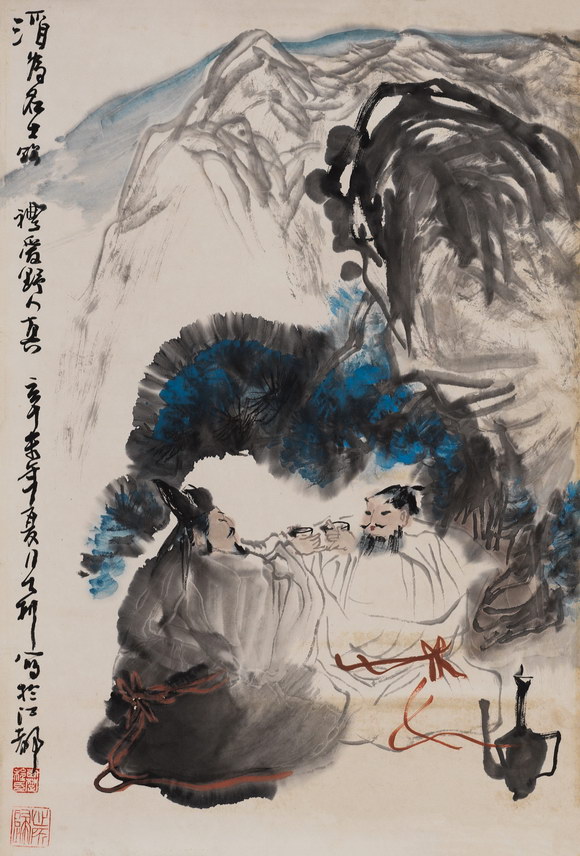 酒為名士 禮愛野人真 辛未年夏月 寫於江都